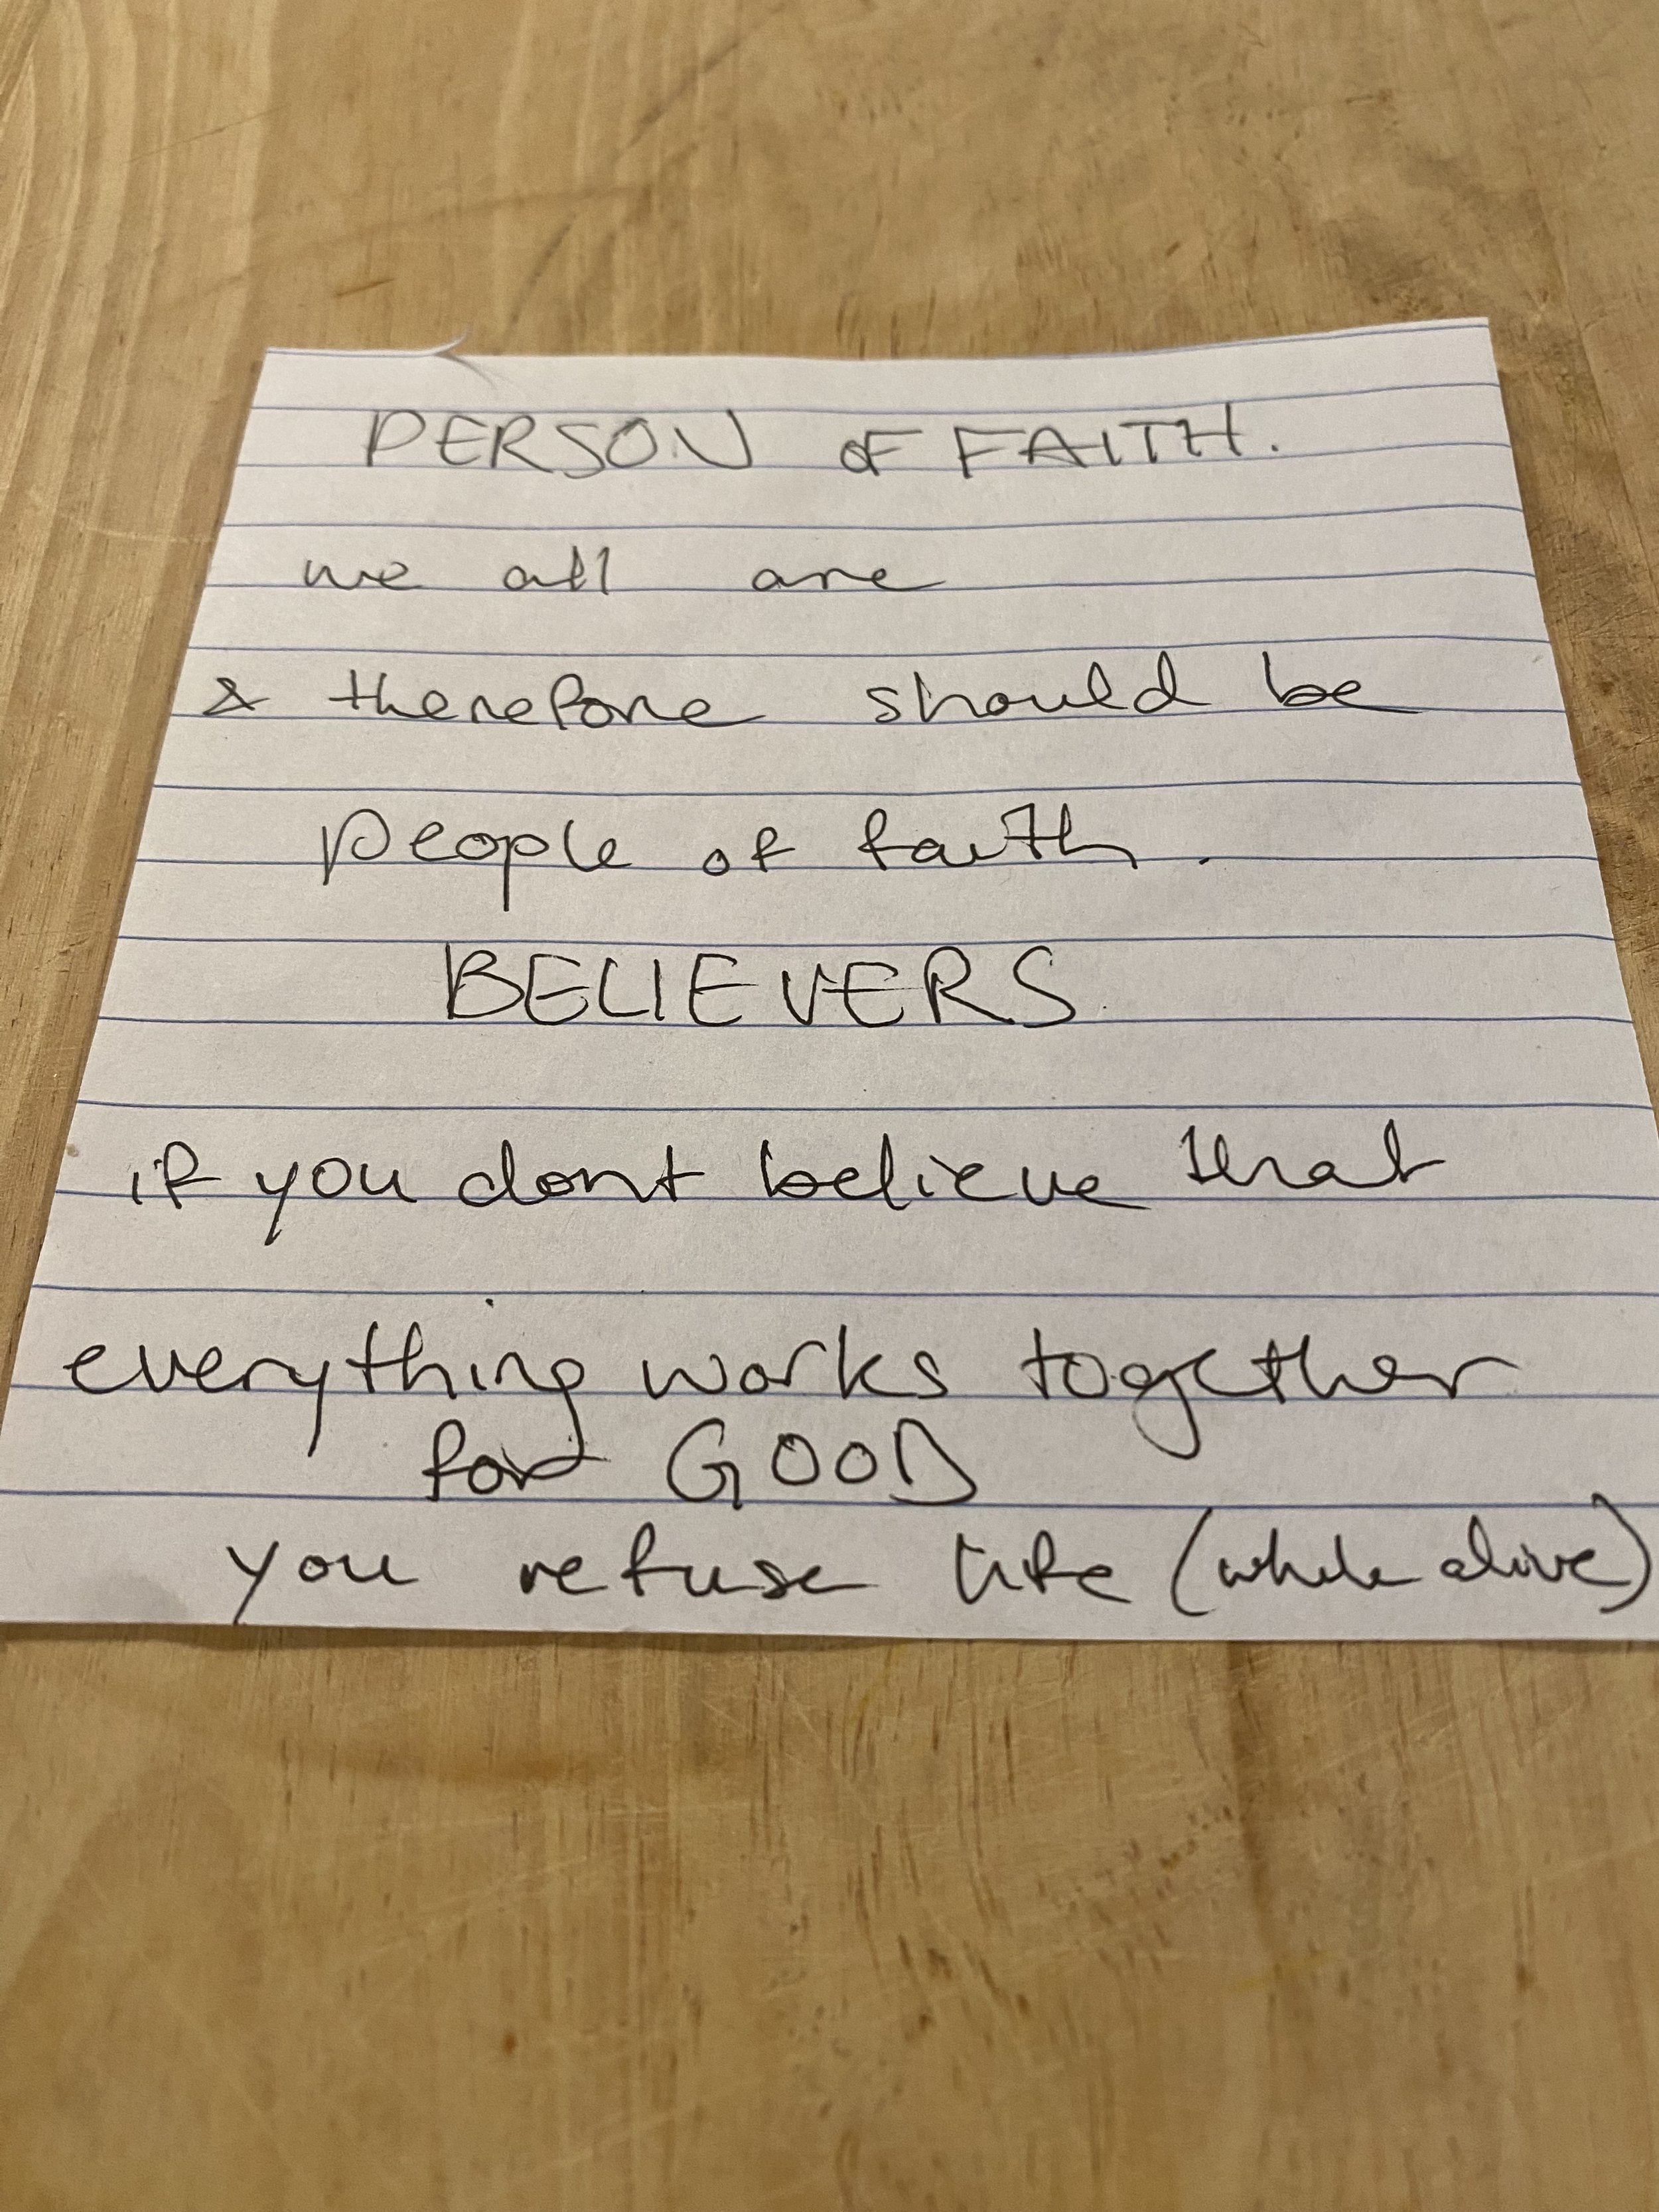 PERSON OF FAITH.
we all are
& therefore should be
people of faith.
BELIEVERS
if you dont believe that
everything works together
for GOOD
you refuse life (while alive)